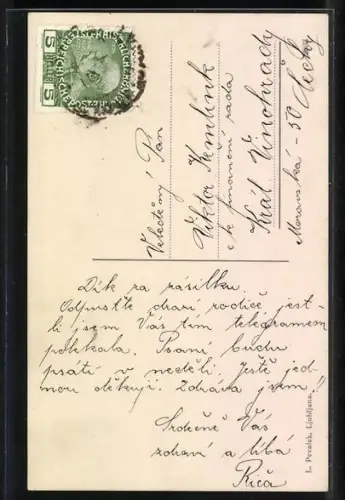 5 5
Velectěný Pan
Viktor
c. k. finanční rada
Král Vinohrady
Moravská - 50 Čechy
Dík za zásilku.
Odpusťte drazí rodiče jest-
li jsem Vás tím telegramem
polekala. Psaní budu
psáti v neděli. Ještě jed-
nou děkuji. Zdráva jsem!!
Srdečně Vás
zdraví a líbá
L. Pevalek, Ljubljana.